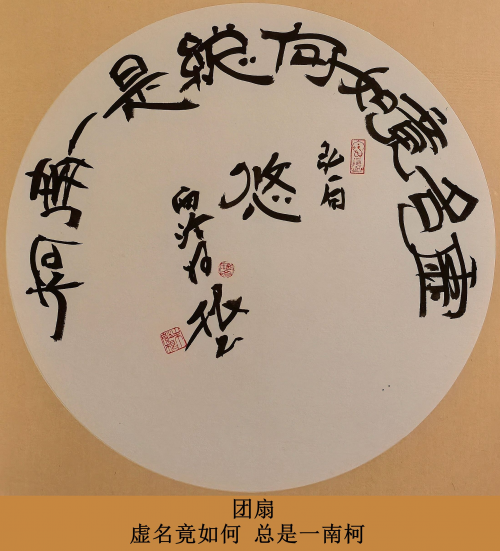 虛名竟如何總是一南柯
弘一句
悠
团扇
虚名竟如何 总是一南柯